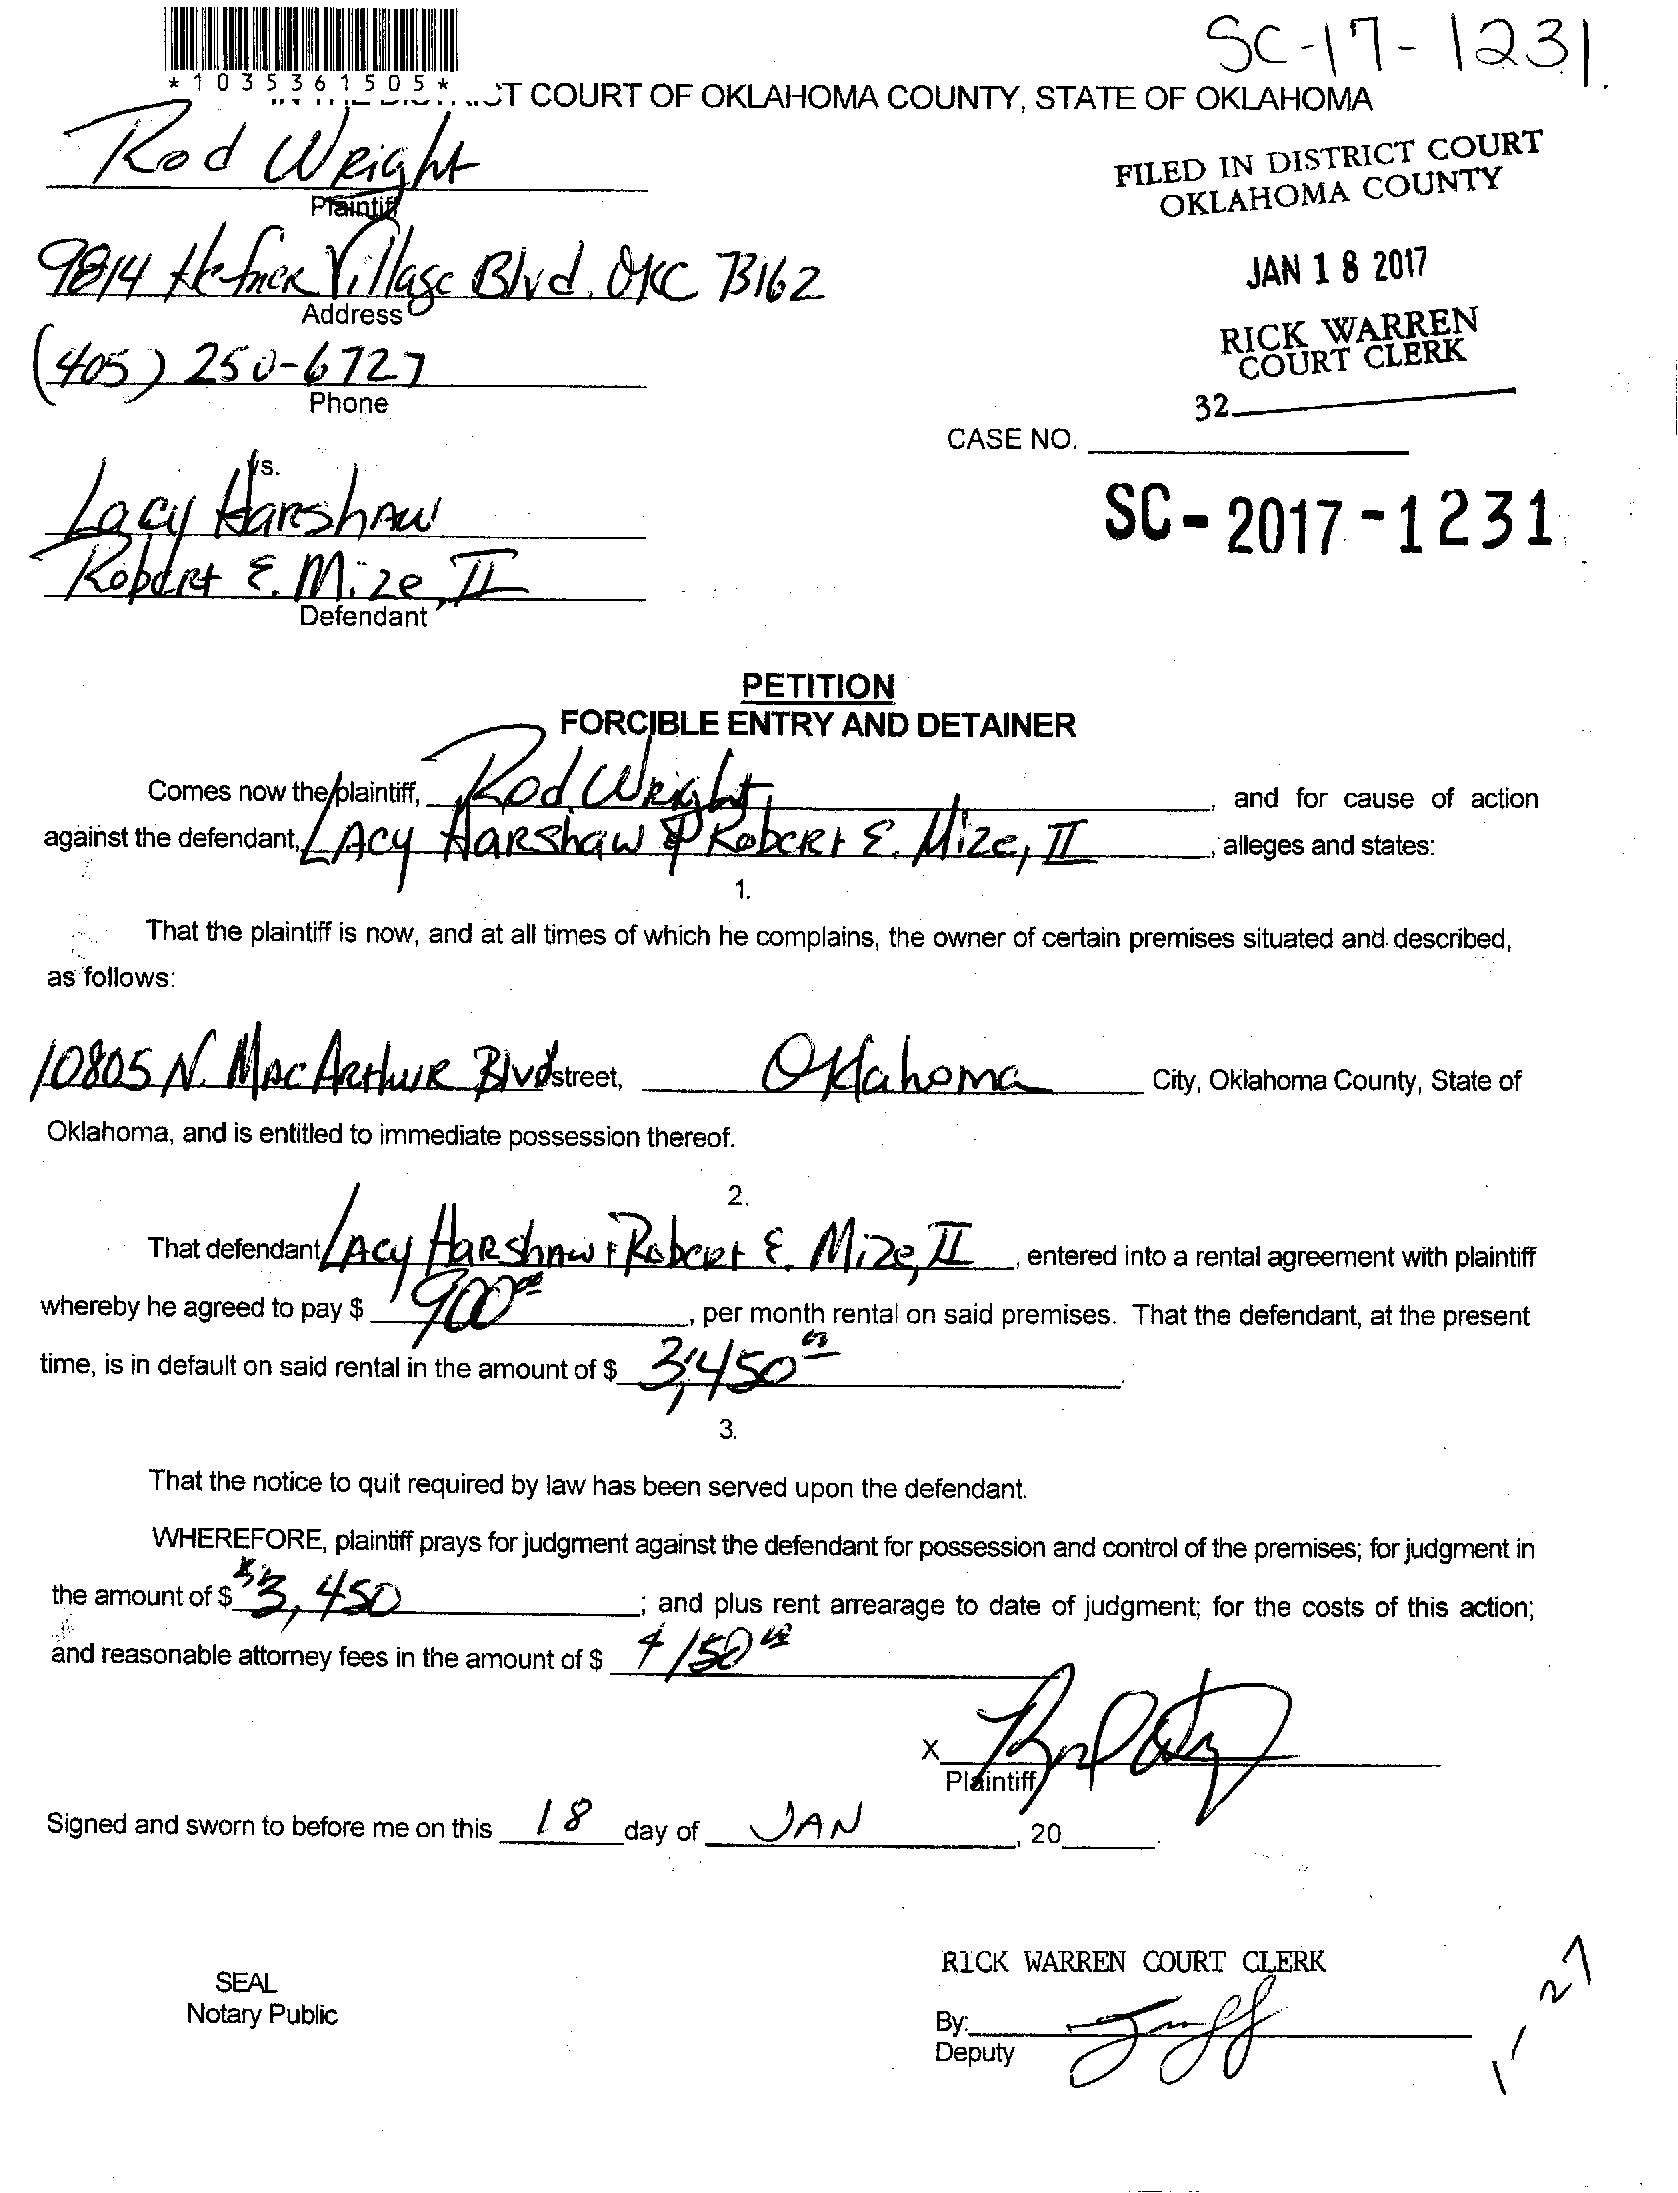 SC-17-1231.
*1035361505*
CT COURT OF OKLAHOMA COUNTY, STATE OF OKLAHOMA
Rod Wright
Plaintiff
FILED IN DISTRICT COURT
OKLAHOMA COUNTY
9814 Hefner Village Blvd. OKC 73162
Address
JAN 18 2017
(405) 250-6727
Phone
RICK WARREN
COURT CLERK
32
CASE NO.
vs.
Lacy Harshaw
SC-2017-1231
Robert E. Mize, II
Defendant
PETITION
FORCIBLE ENTRY AND DETAINER
Comes now the plaintiff, Rod Wright, and for cause of action
against the defendant, Lacy Harshaw & Robert E. Mize, II, alleges and states:
1.
That the plaintiff is now, and at all times of which he complains, the owner of certain premises situated and described,
as follows:
10805 N. MacArthur Blvd street, Oklahoma City, Oklahoma County, State of
Oklahoma, and is entitled to immediate possession thereof.
2.
That defendant Lacy Harshaw & Robert E. Mize, II, entered into a rental agreement with plaintiff
whereby he agreed to pay $ 900.00, per month rental on said premises. That the defendant, at the present
time, is in default on said rental in the amount of $ 3,450.00.
3.
That the notice to quit required by law has been served upon the defendant.
WHEREFORE, plaintiff prays for judgment against the defendant for possession and control of the premises; for judgment in
the amount of $ 3,450; and plus rent arrearage to date of judgment; for the costs of this action;
and reasonable attorney fees in the amount of $ 150.00
X
Plaintiff
Signed and sworn to before me on this 18 day of JAN, 20
RICK WARREN COURT CLERK
SEAL
Notary Public
By:
Deputy
1-27